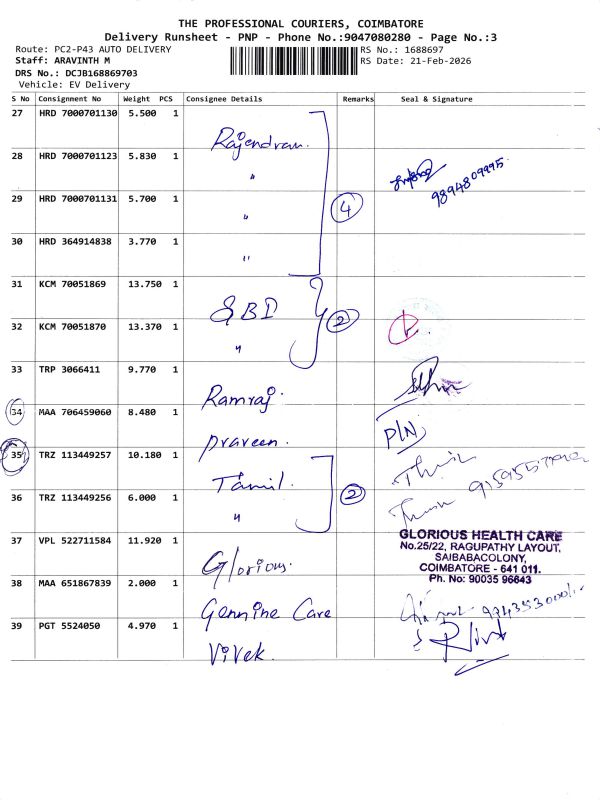 THE PROFESSIONAL COURIERS, COIMBATORE
Delivery Runsheet - PNP - Phone No.:9047080280 - Page No.:3
Route: PC2-P43 AUTO DELIVERY
RS No.: 1688697
Staff: ARAVINTH M
RS Date: 21-Feb-2026
DRS No.: DCJB168869703
Vehicle: EV Delivery
S No Consignment No Weight PCS Consignee Details Remarks Seal & Signature
27 HRD 7000701130 5.500 1 Rajendran.
28 HRD 7000701123 5.830 1 "
9894809995.
29 HRD 7000701131 5.700 1 " 4
30 HRD 364914838 3.770 1 "
31 KCM 70051869 13.750 1 SBI
32 KCM 70051870 13.370 1 " 2
33 TRP 3066411 9.770 1 Ramraj.
34 MAA 706459060 8.480 1 praveen.
35 TRZ 113449257 10.180 1 Tamil.
36 TRZ 113449256 6.000 1 " 2
37 VPL 522711584 11.920 1 Glorious.
GLORIOUS HEALTH CARE
No.25/22, RAGUPATHY LAYOUT,
SAIBABACOLONY,
COIMBATORE - 641 011.
Ph. No: 90035 96643
38 MAA 651867839 2.000 1 Gennine Care
39 PGT 5524050 4.970 1 Vivek.